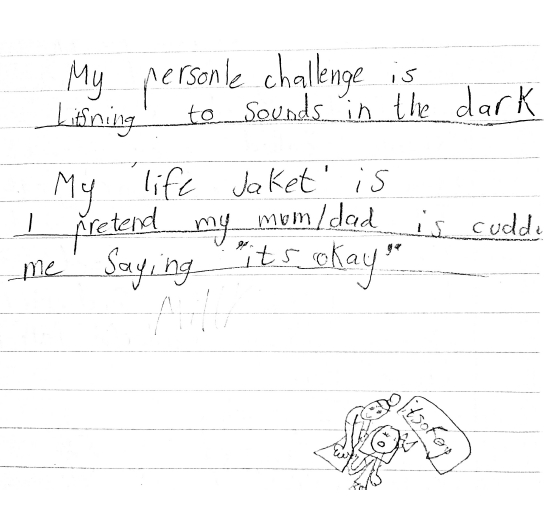 My personle challenge is
Lisning to sounds in the dark
My 'life Jaket' is
I pretend my mum/dad is cuddl
me saying "its okay"
itsokay